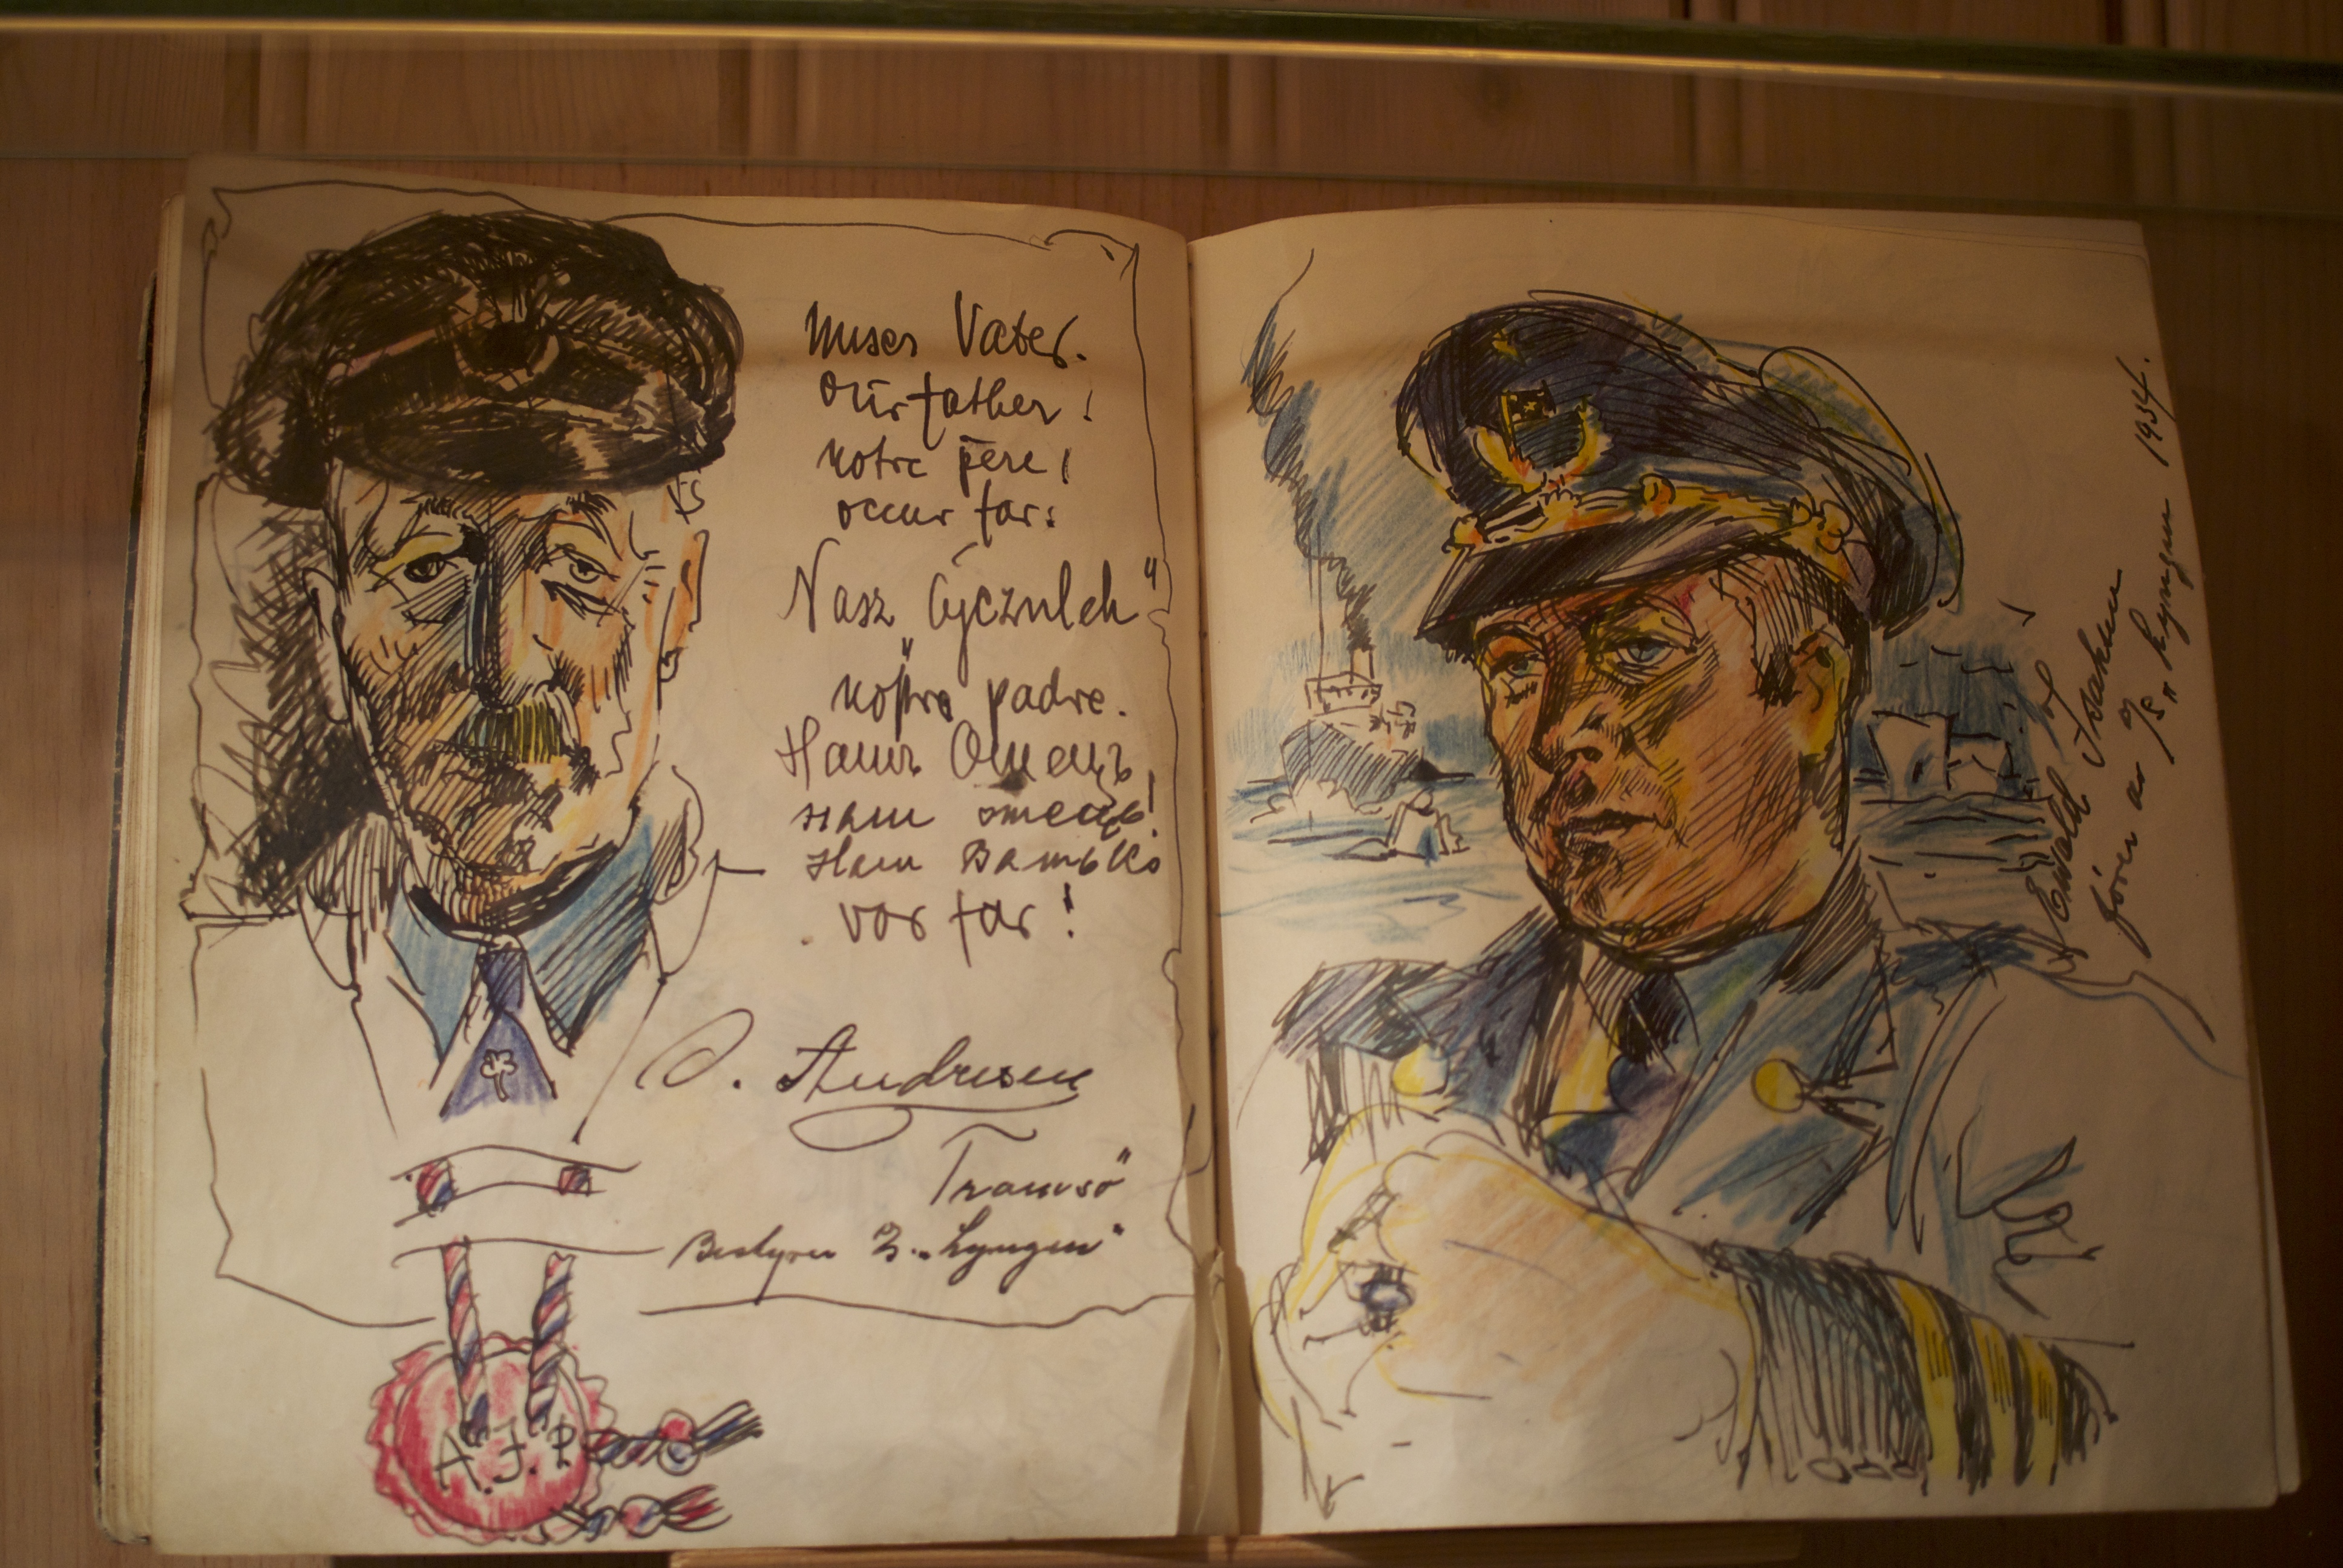 Unser Vater.
Our father!
notre père!
occur far:
Nasz Ojczulek"
nostro padre.
Нашъ Отецъ
нашъ отецъ!
Наш Батько
vor far!
O. Andresen
Tromsö
Bestyrer Z. „Lyngen"
A.J.P.
Ewald Isaksen
fører av S/S „Lyngen 1934.